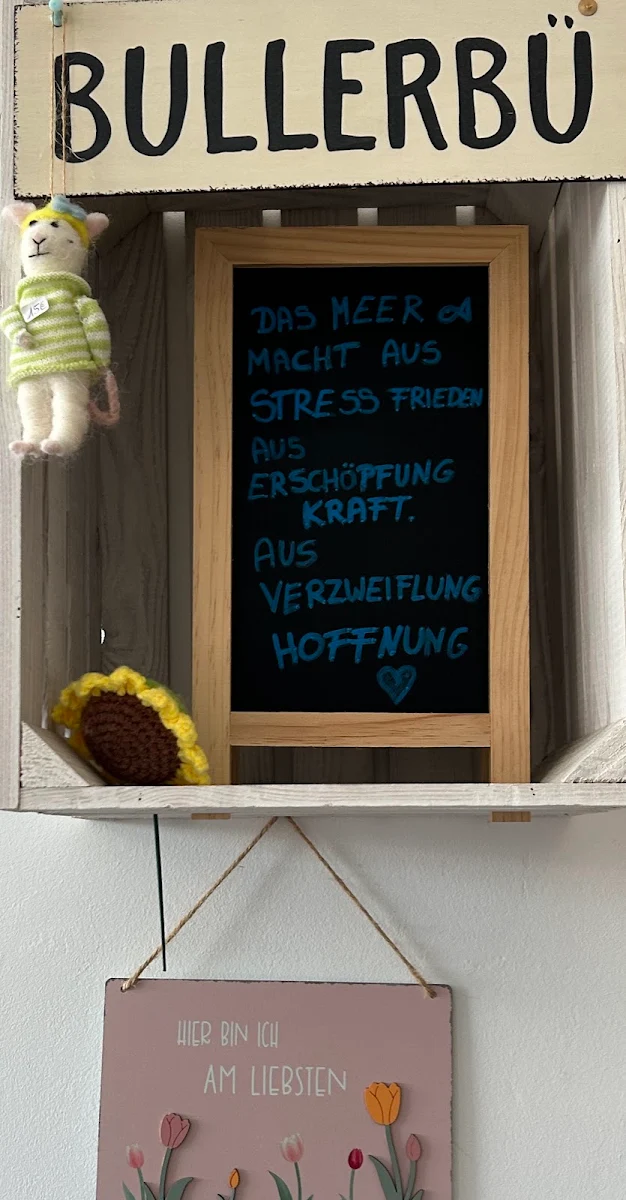 BULLERBÜ
15€
DAS MEER
MACHT AUS
STRESS FRIEDEN
AUS
ERSCHÖPFUNG
KRAFT.
AUS
VERZWEIFLUNG
HOFFNUNG
HIER BIN ICH
AM LIEBSTEN